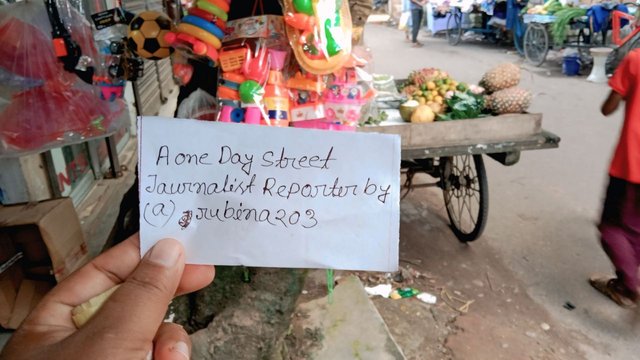 A one Day Street
Jaurnalist Reporter by
(a) rubina203